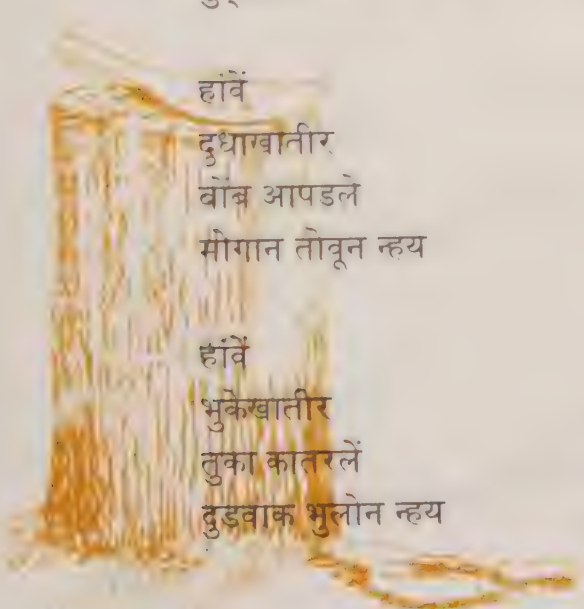 हांवें
दुधाखातीर
बोंब आपडले
मोगान तोवून न्हय
हांवें
भुकेखातीर
तुका कातरलें
दुडवाक भुलोन न्हय